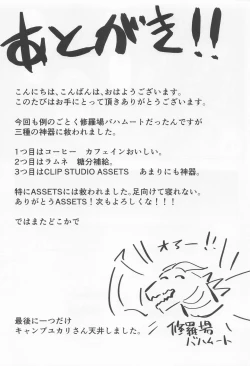 あとがき!!
こんにちは、こんばんは、おはようございます。
このたびはお手にとって頂きありがとうございます。
今回も例のごとく修羅場バハムートだったんですが
三種の神器に救われました。
1つ目はコーヒー　カフェインおいしい。
2つ目はラムネ　糖分補給。
3つ目はCLIP STUDIO ASSETS　あまりにも神器。
特にASSETSには救われました。足向けて寝れない。
ありがとうASSETS！次もよろしくな！！！
ではまたどこかで
オるー!!
修羅場
バハムート
最後に一つだけ
キャンプユカリさん天井しました。